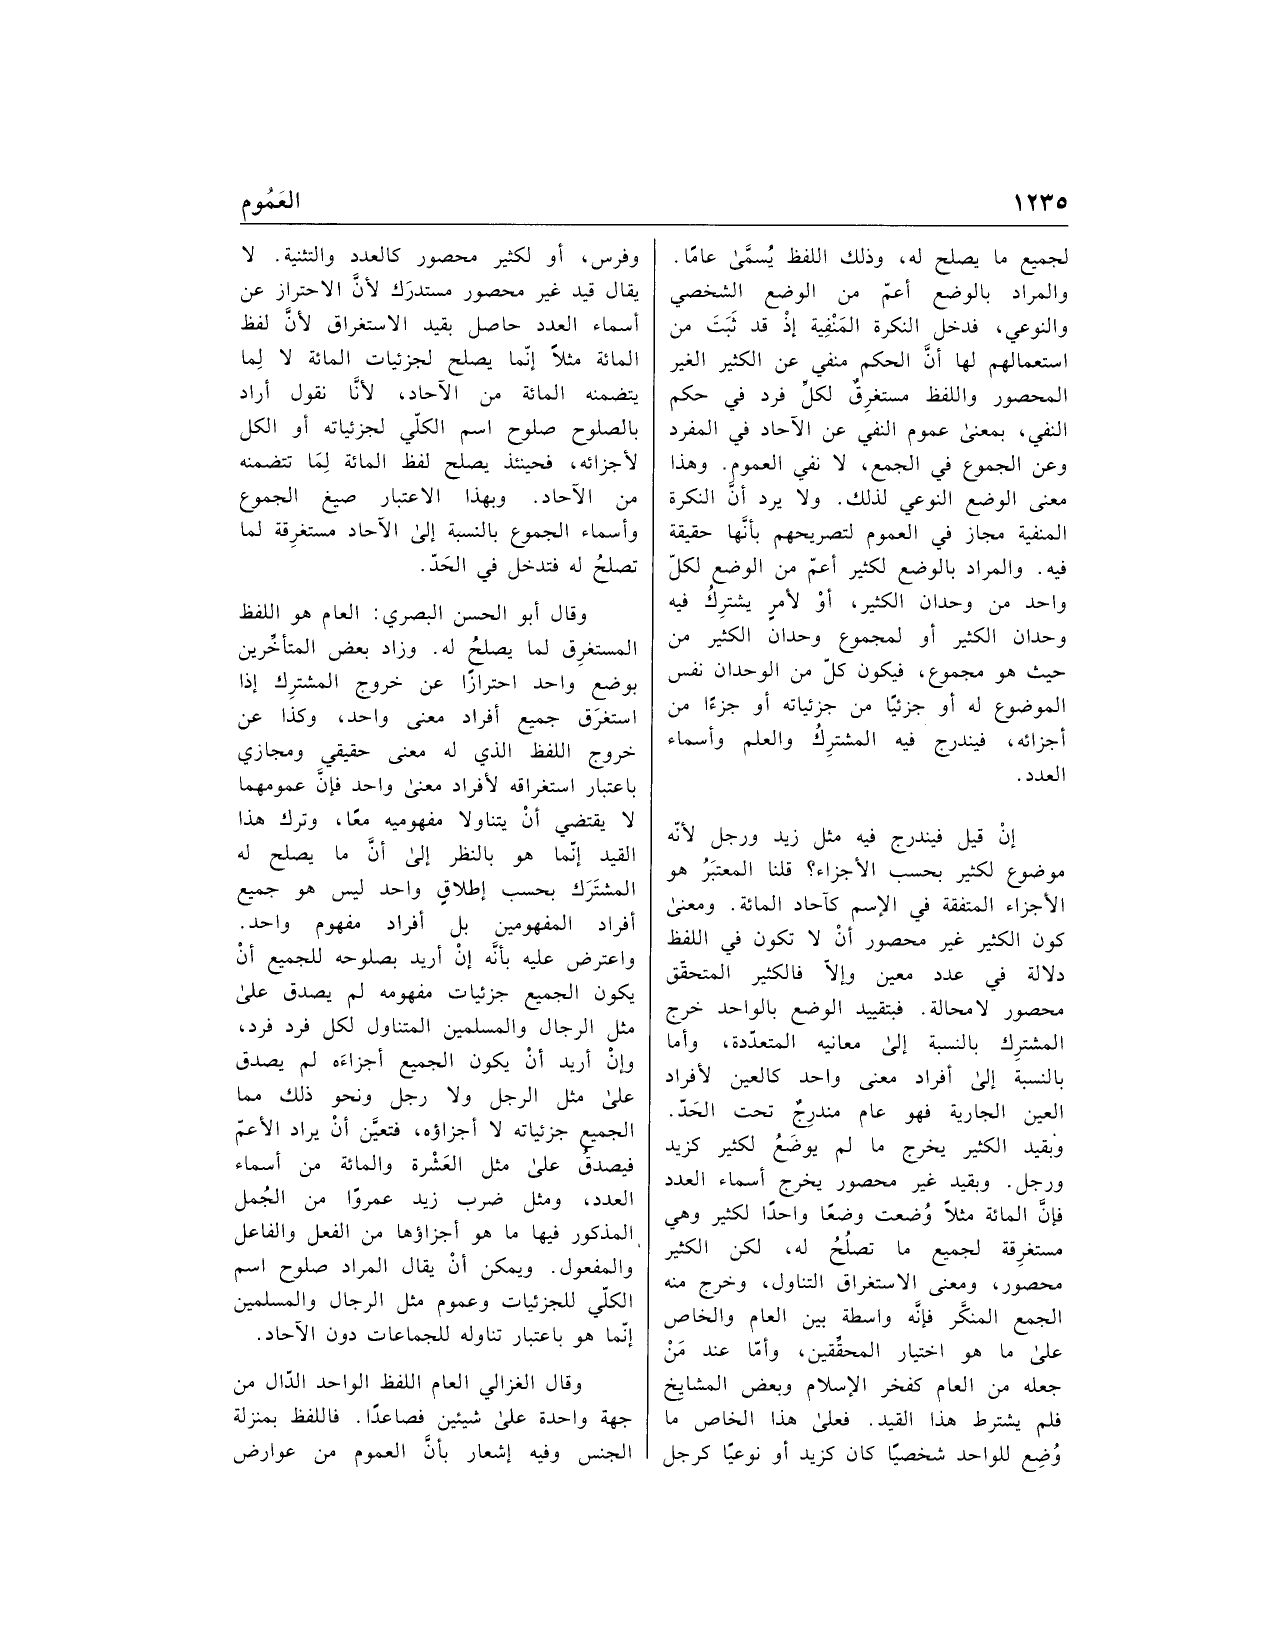 ١٢٣٥
العَمُوم
لجميع ما يصلح له، وذلك اللفظ يُسمَّىٰ عامًا.
والمراد بالوضع أعمّ من الوضع الشخصي
والنوعي، فدخل النكرة المَنْفِية إذْ قد ثَبَتَ من
استعمالهم لها أنَّ الحكم منفي عن الكثير الغير
المحصور واللفظ مستغرِقٌ لكلِّ فرد في حكم
النفي، بمعنىٰ عموم النفي عن الآحاد في المفرد
وعن الجموع في الجمع، لا نفي العموم. وهذا
معنى الوضع النوعي لذلك. ولا يرد أنَّ النكرة
المنفية مجاز في العموم لتصريحهم بأنَّها حقيقة
فيه. والمراد بالوضع لكثير أعمّ من الوضع لكلّ
واحد من وحدان الكثير، أوْ لأمرٍ يشترِكُ فيه
وحدان الكثير أو لمجموع وحدان الكثير من
حيث هو مجموع، فيكون كلّ من الوحدان نفس
الموضوع له أو جزئيًا من جزئياته أو جزءًا من
أجزائه، فيندرج فيه المشترِكُ والعلم وأسماء
العدد.
إنْ قيل فيندرج فيه مثل زيد ورجل لأنّه
موضوع لكثير بحسب الأجزاء؟ قلنا المعتبَرُ هو
الأجزاء المتفقة في الإسم كآحاد المائة. ومعنىٰ
كون الكثير غير محصور أنْ لا تكون في اللفظ
دلالة في عدد معين وإلاّ فالكثير المتحقّق
محصور لامحالة. فبتقييد الوضع بالواحد خرج
المشترِك بالنسبة إلىٰ معانيه المتعدّدة، وأما
بالنسبة إلىٰ أفراد معنى واحد كالعين لأفراد
العين الجارية فهو عام مندرجٌ تحت الحَدّ.
وبقيد الكثير يخرج ما لم يوضَعُ لكثير كزيد
ورجل. وبقيد غير محصور يخرج أسماء العدد
فإنَّ المائة مثلاً وُضعت وضعًا واحدًا لكثير وهي
مستغرِقة لجميع ما تصلُحُ له، لكن الكثير
محصور، ومعنى الاستغراق التناول، وخرج منه
الجمع المنكَّر فإنَّه واسطة بين العام والخاص
علىٰ ما هو اختيار المحقِّقين، وأمّا عند مَنْ
جعله من العام كفخر الإسلام وبعض المشايخ
فلم يشترط هذا القيد. فعلىٰ هذا الخاص ما
وُضِع للواحد شخصيًا كان كزيد أو نوعيًا كرجل
وفرس، أو لكثير محصور كالعدد والتثنية. لا
يقال قيد غير محصور مستدرَك لأنَّ الاحتراز عن
أسماء العدد حاصل بقيد الاستغراق لأنَّ لفظ
المائة مثلاً إنّما يصلح لجزئيات المائة لا لِما
يتضمنه المائة من الآحاد، لأنَّا نقول أراد
بالصلوح صلوح اسم الكلّي لجزئياته أو الكل
لأجزائه، فحينئذ يصلح لفظ المائة لِمَا تتضمنه
من الآحاد. وبهذا الاعتبار صيغ الجموع
وأسماء الجموع بالنسبة إلىٰ الآحاد مستغرِقة لما
تصلحُ له فتدخل في الحَدّ.
وقال أبو الحسن البصري: العام هو اللفظ
المستغرِق لما يصلحُ له. وزاد بعض المتأخِّرين
بوضع واحد احترازًا عن خروج المشترِك إذا
استغرَق جميع أفراد معنى واحد، وكذا عن
خروج اللفظ الذي له معنى حقيقي ومجازي
باعتبار استغراقه لأفراد معنىٰ واحد فإنَّ عمومهما
لا يقتضي أنْ يتناولا مفهوميه معًا، وترك هذا
القيد إنّما هو بالنظر إلىٰ أنَّ ما يصلح له
المشتَرَك بحسب إطلاقٍ واحد ليس هو جميع
أفراد المفهومين بل أفراد مفهوم واحد.
واعترض عليه بأنَّه إنْ أريد بصلوحه للجميع أنْ
يكون الجميع جزئيات مفهومه لم يصدق علىٰ
مثل الرجال والمسلمين المتناول لكل فرد فرد،
وإنْ أريد أنْ يكون الجميع أجزاءَه لم يصدق
علىٰ مثل الرجل ولا رجل ونحو ذلك مما
الجميع جزئياته لا أجزاؤه، فتعيَّن أنْ يراد الأعمّ
فيصدقُ علىٰ مثل العَشْرة والمائة من أسماء
العدد، ومثل ضرب زيد عمروًا من الجُمل
المذكور فيها ما هو أجزاؤها من الفعل والفاعل
والمفعول. ويمكن أنْ يقال المراد صلوح اسم
الكلّي للجزئيات وعموم مثل الرجال والمسلمين
إنّما هو باعتبار تناوله للجماعات دون الآحاد.
وقال الغزالي العام اللفظ الواحد الدّال من
جهة واحدة علىٰ شيئين فصاعدًا. فاللفظ بمنزلة
الجنس وفيه إشعار بأنَّ العموم من عوارض